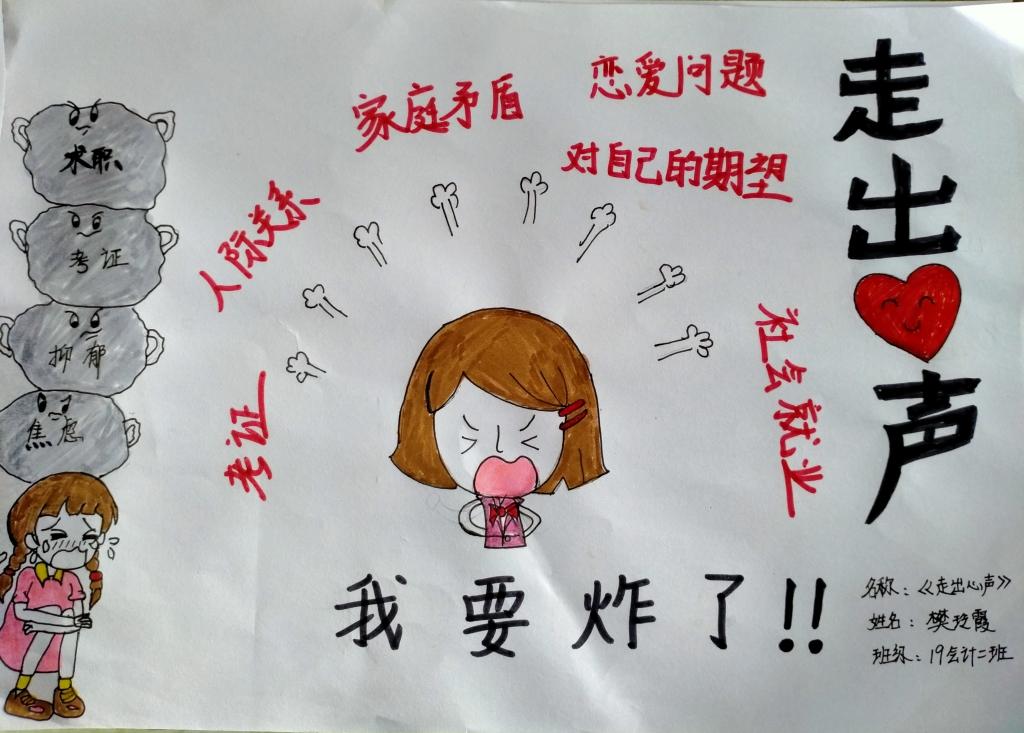 走出
声
家庭矛盾
恋爱问题
对自己的期望
人际关系
考证
社会就业
求职
考证
抑郁
焦虑
我要炸了!!
名称:《走出心声》
姓名:樊玲霞
班级:19会计二班